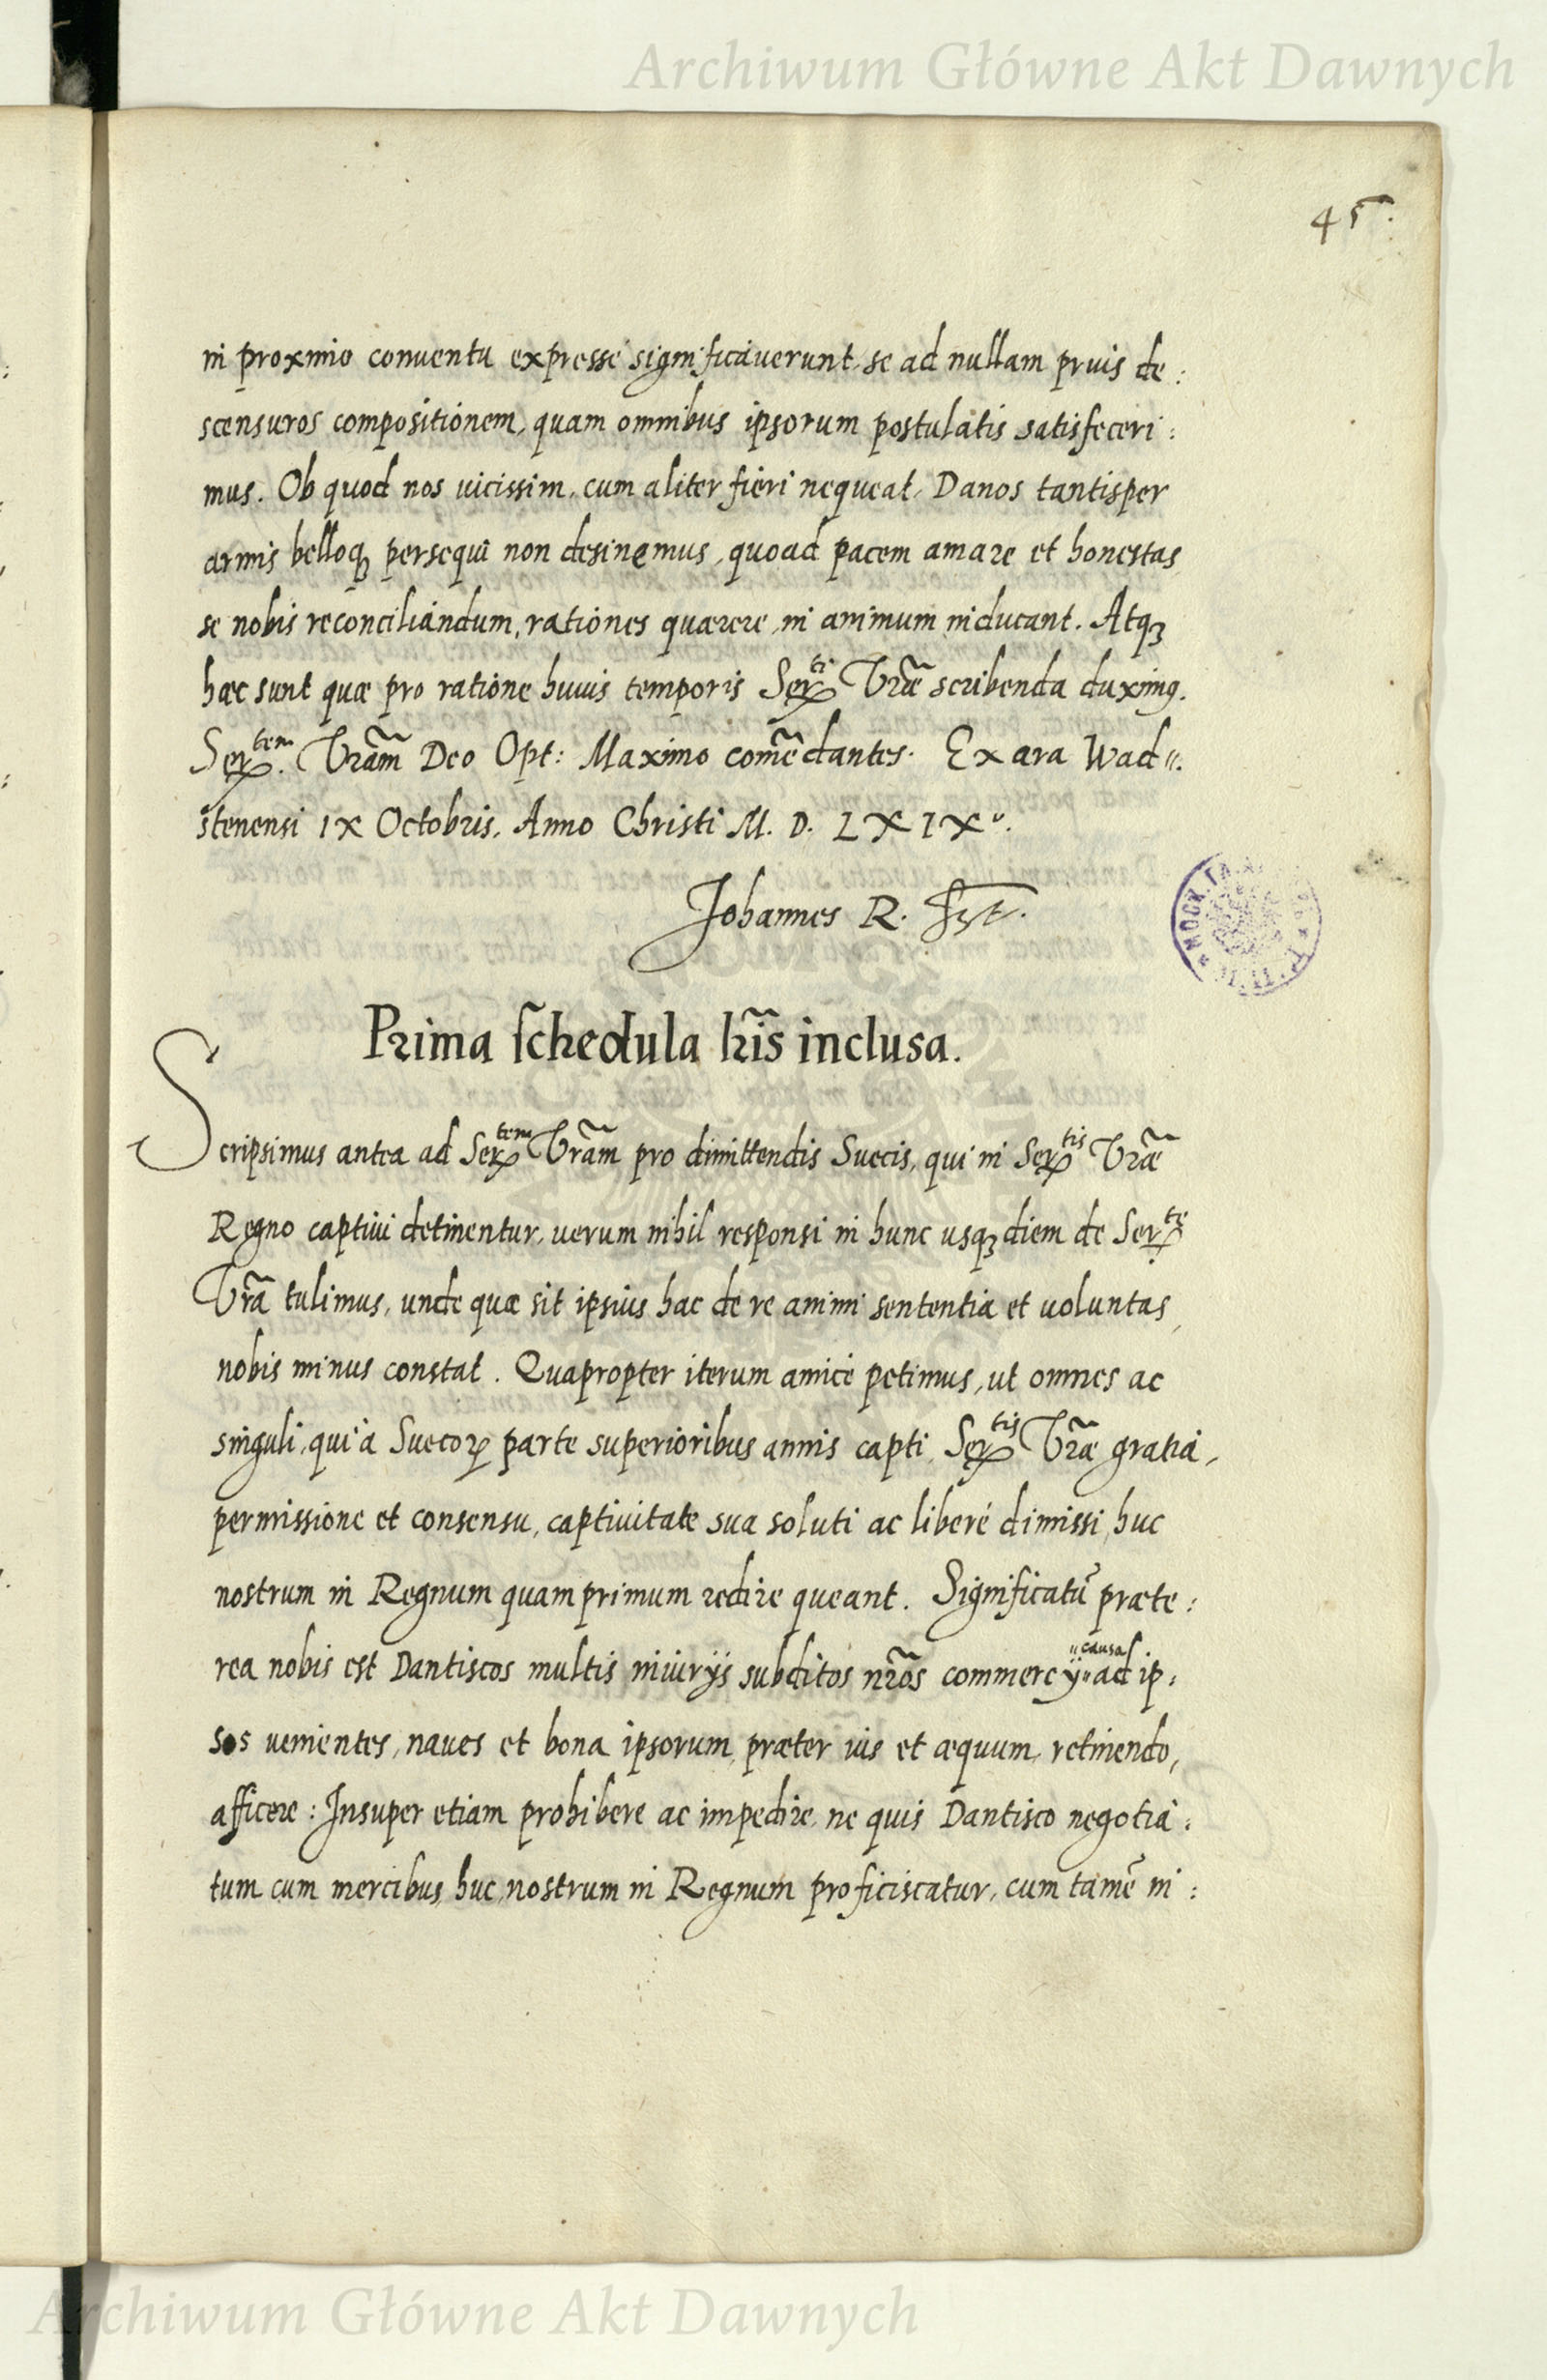 Archiwum Główne Akt Dawnych
45.
in proximo conuentu expressè significauerunt, se ad nullam prius de:
scensuros compositionem, quam omnibus ipsorum postulatis satisfeceri:
mus. Ob quod nos uicissim, cum aliter fieri nequeat, Danos tantisper
armis belloq; persequi non desinemus, quoad pacem amare et honestas
se nobis reconciliandum, rationes quaerere, in animum inducant. Atq;
haec sunt quae pro ratione huius temporis Ser^ti Vrae scribenda duxim9.
Ser^tem. Vram Deo Opt: Maximo comēdantes. Ex ara Wad
stenensi IX Octobris. Anno Christi M. D. LXIX.
Johannes R. sst.
Prima schedula lris inclusa.
Scripsimus antea ad Ser^tem Vram pro dimittendis Suecis, qui in Ser^tis Vrae
Regno captiui detinentur, uerum nihil responsi in hunc usq; diem de Ser^te
Vra tulimus, unde quae sit ipsius hac de re animi sententia et uoluntas,
nobis minus constat. Quapropter iterum amicè petimus, ut omnes ac
singuli, qui à Suecor. parte superioribus annis capti, Ser^tis Vrae gratia,
permissione et consensu, captiuitate sua soluti ac liberè dimissi, huc
nostrum in Regnum quamprimum redire queant. Significatū praete:
rea nobis est Dantiscos multis iniurijs subditos nros commercij causa ad ip:
sos uenientes, naues et bona ipsorum, praeter ius et aequum, retinendo,
afficere: Insuper etiam prohibere ac impedire, ne quis Dantisco negotia:
tum cum mercibus, huc nostrum in Regnum proficiscatur, cum tamē in:
Archiwum Główne Akt Dawnych